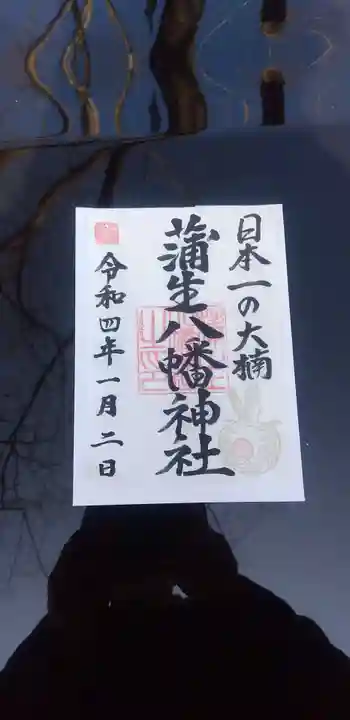 日本一の大楠
蒲生八幡神社
令和四年一月二日